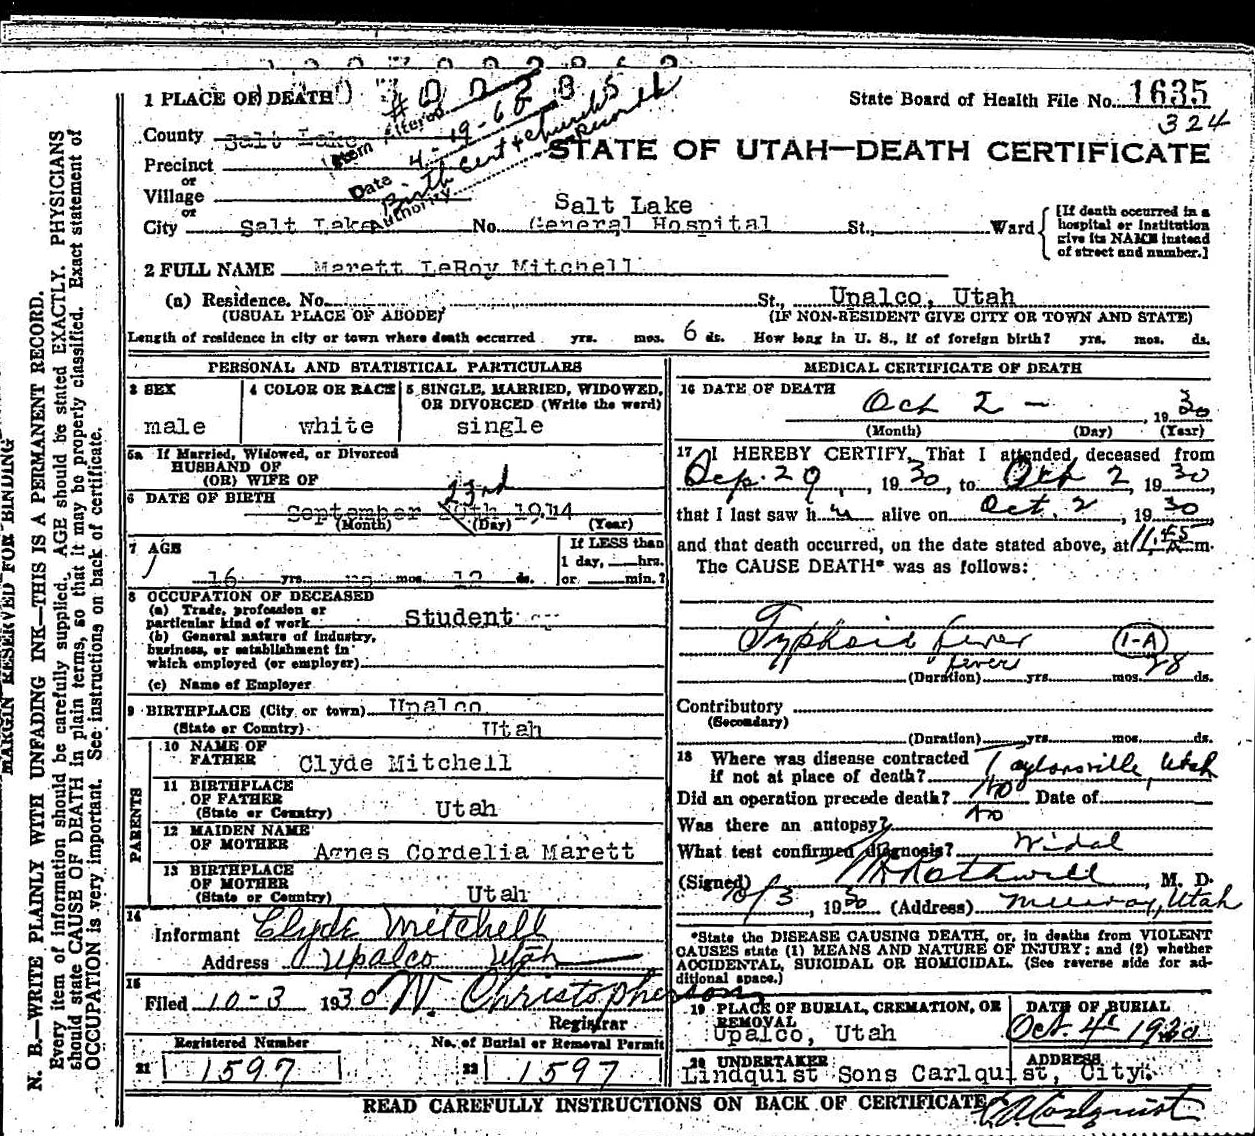 1 PLACE OF DEATH
State Board of Health File No. 1635
324
County Salt Lake
Item Altered #6
Date 4-19-68
Authority Birth Cert + church records
STATE OF UTAH—DEATH CERTIFICATE
Precinct
or
Village
or
City Salt Lake No. Salt Lake General Hospital St., Ward
[If death occurred in a
hospital or institution
give its NAME instead
of street and number.]
2 FULL NAME Marett LeRoy Mitchell
(a) Residence. No. St., Upalco, Utah
(USUAL PLACE OF ABODE) (IF NON-RESIDENT GIVE CITY OR TOWN AND STATE)
Length of residence in city or town where death occurred yrs. mos. 6 ds. How long in U. S., if of foreign birth? yrs. mos. ds.
PERSONAL AND STATISTICAL PARTICULARS
3 SEX
male
4 COLOR OR RACE
white
5 SINGLE, MARRIED, WIDOWED,
OR DIVORCED (Write the word)
single
5a If Married, Widowed, or Divorced
HUSBAND OF
(OR) WIFE OF
6 DATE OF BIRTH
23rd
September 20th 1914
(Month) (Day) (Year)
7 AGE
16 yrs. no mos. 12 ds.
If LESS than
1 day, hrs.
or min.?
8 OCCUPATION OF DECEASED
(a) Trade, profession or
particular kind of work Student
(b) General nature of industry,
business, or establishment in
which employed (or employer)
(c) Name of Employer
9 BIRTHPLACE (City or town) Upalco
(State or Country) Utah
PARENTS
10 NAME OF
FATHER Clyde Mitchell
11 BIRTHPLACE
OF FATHER
(State or Country) Utah
12 MAIDEN NAME
OF MOTHER Agnes Cordelia Marett
13 BIRTHPLACE
OF MOTHER
(State or Country) Utah
14
Informant Clyde Mitchell
Address Upalco Utah
15
Filed 10-3 1930 W. Christopherson
Registrar
Registered Number
21 1597
No. of Burial or Removal Permit
22 1597
MEDICAL CERTIFICATE OF DEATH
16 DATE OF DEATH
Oct 2 - , 1930
(Month) (Day) (Year)
17 I HEREBY CERTIFY, That I attended deceased from
Sep. 29, 1930, to Oct 2, 1930,
that I last saw him alive on Oct. 2, 1930
and that death occurred, on the date stated above, at 11:45 A.m.
The CAUSE DEATH* was as follows:
Typhoid fever (1-A)
" fever
(Duration) yrs. mos. 28 ds.
Contributory
(Secondary)
(Duration) yrs. mos. ds.
18 Where was disease contracted
if not at place of death? Taylorsville, Utah
Did an operation precede death? No Date of
Was there an autopsy? No
What test confirmed diagnosis? Widal
(Signed) Rothwell, M. D.
10/3, 1930 (Address) Murray, Utah
*State the DISEASE CAUSING DEATH, or, in deaths from VIOLENT
CAUSES state (1) MEANS AND NATURE OF INJURY; and (2) whether
ACCIDENTAL, SUICIDAL OR HOMICIDAL. (See reverse side for ad-
ditional space.)
19 PLACE OF BURIAL, CREMATION, OR
REMOVAL
Upalco, Utah
DATE OF BURIAL
Oct. 4 1930
20 UNDERTAKER
Lindquist Sons Carlquist, City.
ADDRESS
READ CAREFULLY INSTRUCTIONS ON BACK OF CERTIFICATE
MARGIN RESERVED FOR BINDING
N. B.—WRITE PLAINLY WITH UNFADING INK—THIS IS A PERMANENT RECORD.
Every item of information should be carefully supplied. AGE should be stated EXACTLY. PHYSICIANS
should state CAUSE OF DEATH in plain terms, so that it may be properly classified. Exact statement of
OCCUPATION is very important. See instructions on back of certificate.